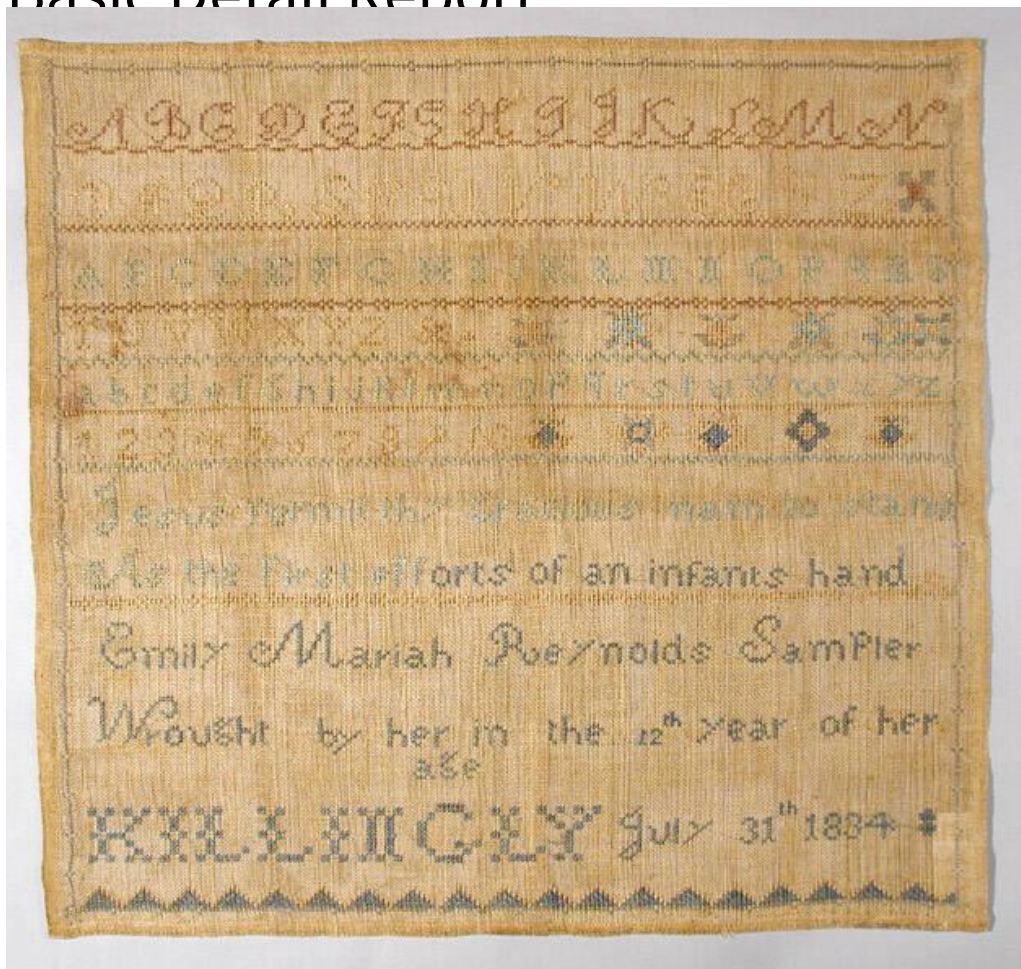 Basic Detail Report
A B C D E F G H I J K L M N
A B C D E F G H I J K L M N O P Q R S
T U V W X Y Z &
a b c d e f g h i j k l m n o p q r s t u v w x y z
1 2 3 4 5 6 7 8 9 10
Jesus permit thy Gracious name to stand
As the first efforts of an infants hand
Emily Mariah Reynolds Sampler
Wrought by her in the 12th year of her
age
KILLINGLY July 31th 1834